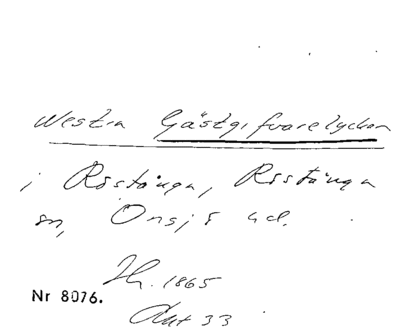 Westra Gästgifvarelyckan
i Röstånga, Röstånga
sn, Onsjö hd.
Nr 8076.
Hr. 1865
Akt 33